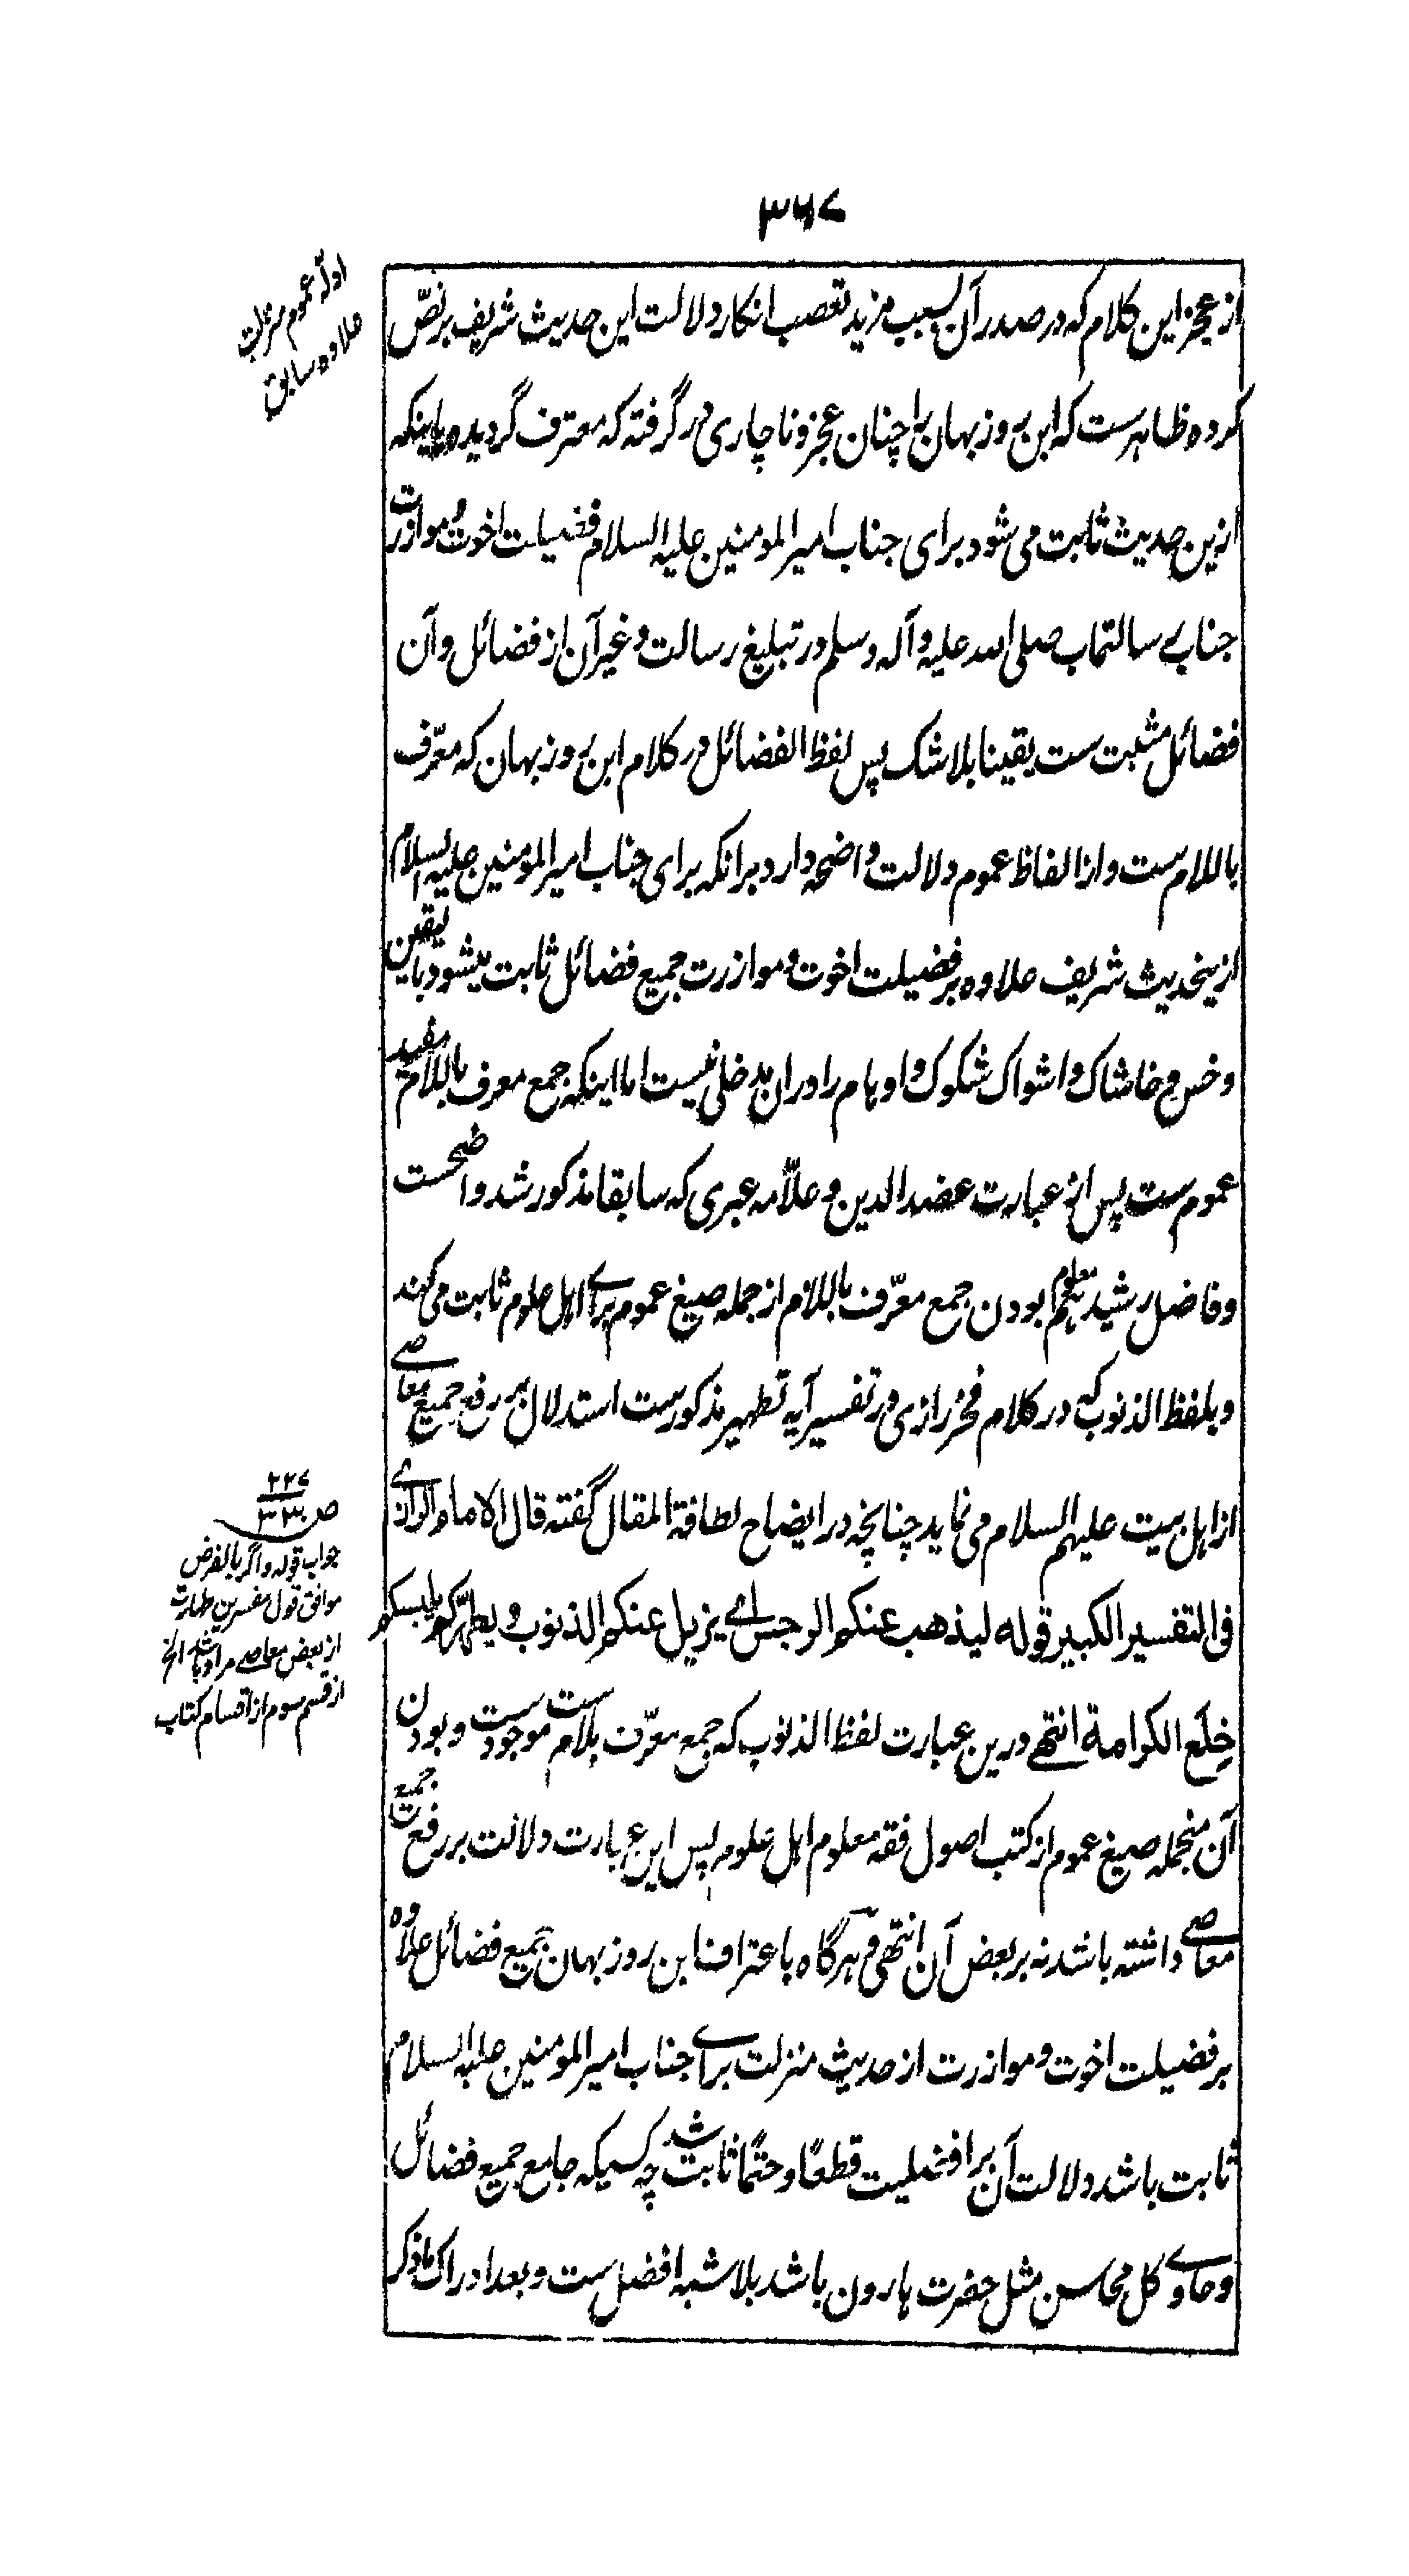 ۳۶۷
ادلّه عموم منزلت
علاوه سابق
از عجز این کلام که در صدر آن بسبب مزید تعصب انکار دلالت این حدیث شریف بر نصّ
کرده ظاهرست که ابن روزبهان را چنان عجز و ناچاری در گرفته که معترف گردیده باینکه
ازین حدیث ثابت می شود برای جناب امیر المومنین علیه السلام فضیلت اخوت و موازرت
جناب رسالتمآب صلی الله علیه وآله وسلم در تبلیغ رسالت و غیر آن از فضائل و آن
فضائل مثبت ست یقینا بلا شک پس لفظ الفضائل در کلام ابن روزبهان که معرّف
باللام ست و از الفاظ عموم دلالت واضحه دارد برانکه برای جناب امیر المومنین علیه السلام
ازینحدیث شریف علاوه بر فضیلت اخوت و موازرت جمیع فضائل ثابت میشود بالیقین
و خس و خاشاک و اشواک شکوک و اوهام را دران مدخلی نیست اما اینکه جمع معرف باللام مفید
عموم ست پس از عبارت عضد الدین و علّامه عبری که سابقا مذکور شد واضحست
و فاضل رشید هم معلوم بودن جمع معرّف باللام از جمله صیغ عموم برای اهل علوم ثابت می کند
و بلفظ الذنوب که در کلام فخر رازی در تفسیر آیه تطهیر مذکورست استدلال بر رفع جمیع معاصی
از اهل بیت علیهم السلام می نماید چنانچه در ایضاح لطافة المقال گفته قال الامام الرازی
فی التفسیر الکبیر قوله لیذهب عنکم الرجس ای یزیل عنکم الذنوب و یطهّرکم یلبسکم
خِلَع الکرامة انتهی درین عبارت لفظ الذنوب که جمع معرّف بلام ست موجود ست و بودن
آن منجمله صیغ عموم از کتب اصول فقه معلوم اهل علوم پس این عبارت دلالت بر رفع جمیع
معاصی داشته باشد نه بر بعض آن انتهی و هرگاه باعتراف ابن روزبهان جمیع فضائل علاوه
بر فضیلت اخوت و موازرت از حدیث منزلت برای جناب امیر المومنین علیه السلام
ثابت باشد دلالت آن بر افضلیت قطعًا و حتمًا ثابت شد چه کسیکه جامع جمیع فضائل
و حاوی کل محاسن مثل حضرت هارون باشد بلا شبه افضل ست و بعد ادراک ما ذکر
۲۲۷
ص ۳۳۰
جواب قوله و اگر بالفرض
موافق قول مفسرین طهارت
از بعض معاصی مراد باشد الخ
از قسم سوم از اقسام کتاب